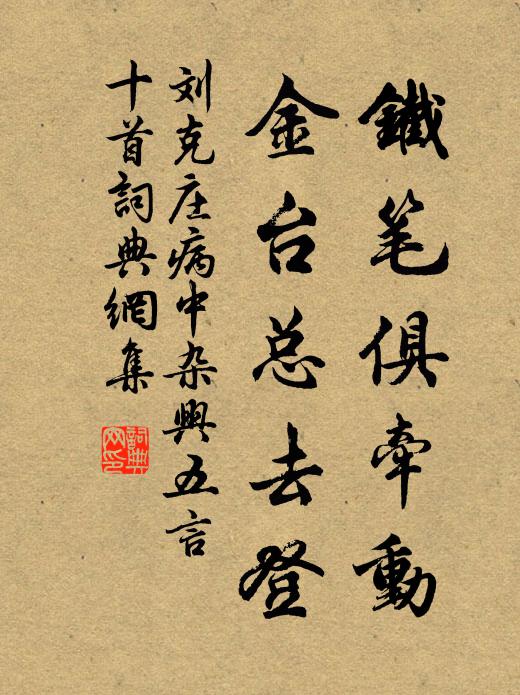 鐵笔俱牵動
金台总去登
刘克庄病中杂興五言
十首詞典網集
詞典網印